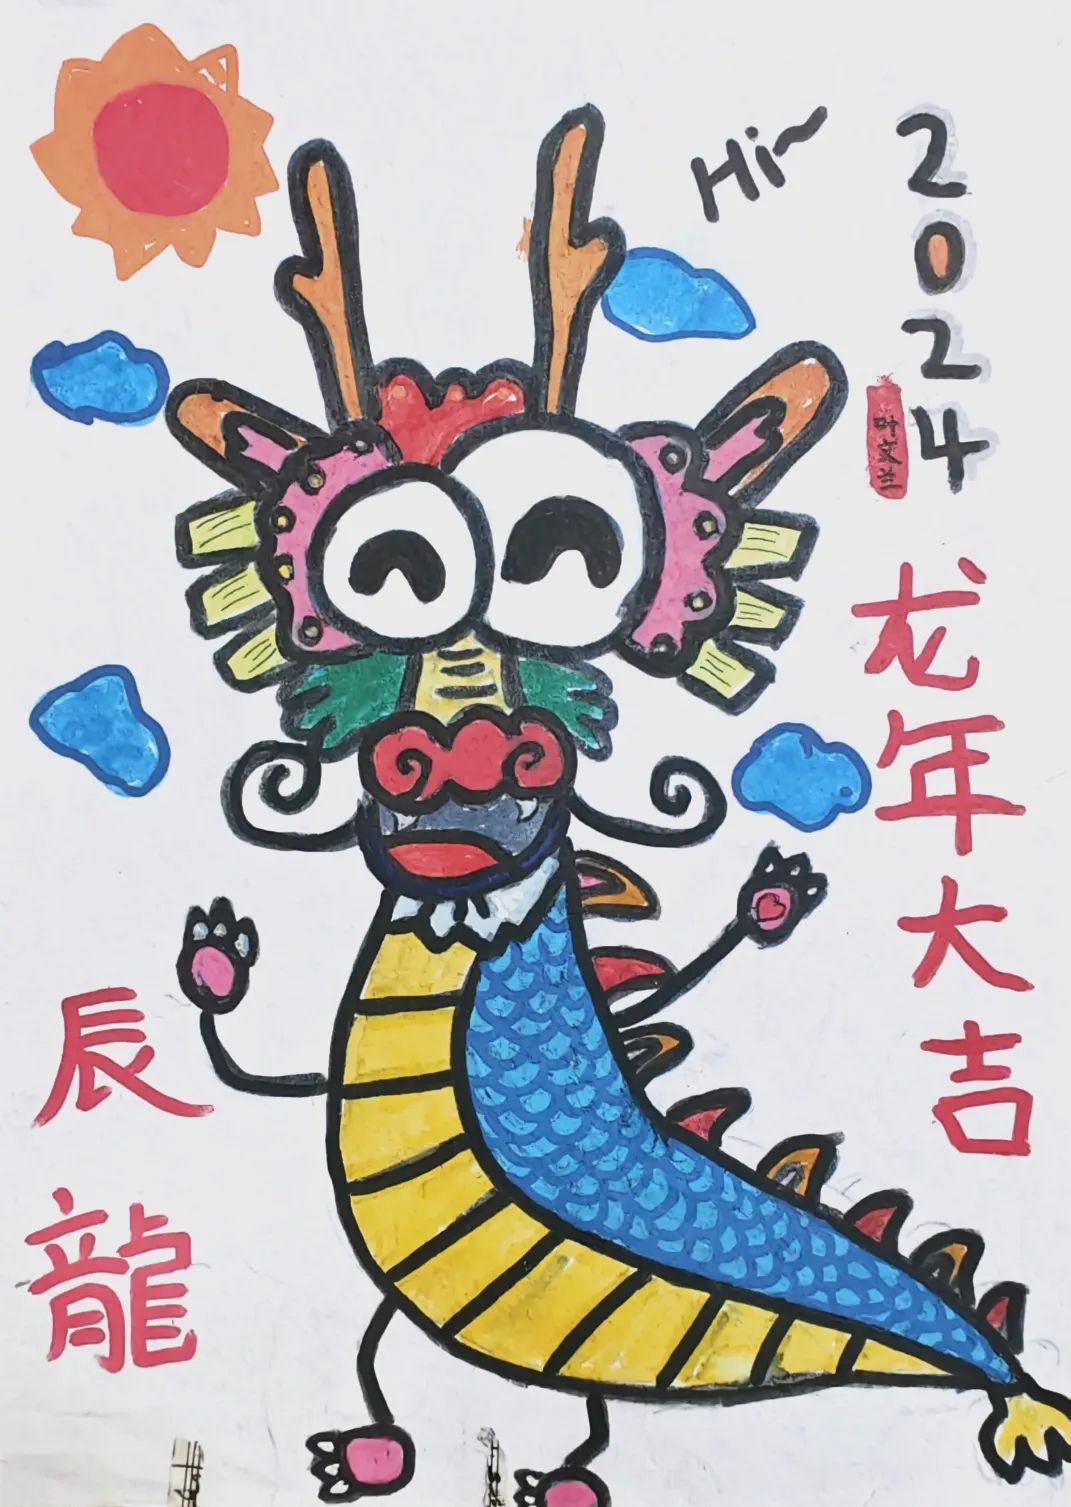 Hi~
2024
叶文兰
龙年大吉
辰龍